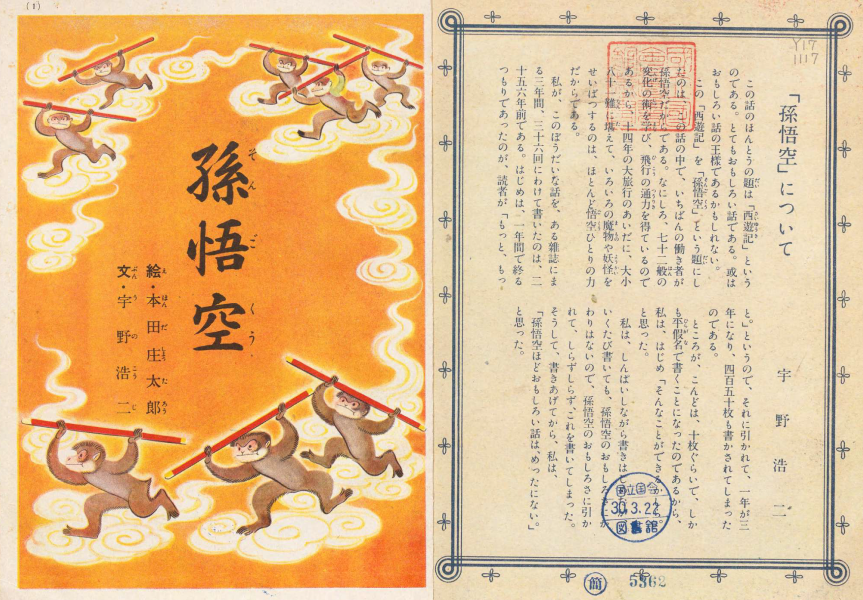 (1)
孫悟空
そんごくう
絵・本田庄太郎
え ほんだしょうたろう
文・宇野浩二
ぶん うのこうじ
Y17
1117
「孫悟空」について
宇野浩二
この話のほんとうの題は「西遊記」という
のである。とてもおもしろい話である。或は
おもしろい話の王様であるかもしれない。
この「西遊記」を「孫悟空」という題にし
たのは、この話の中で、いちばんの働き者が
孫悟空だからである。なにしろ、七十二般の
変化の術を学び、飛行の通力を得ているので
あるから、十四年の大旅行のあいだに、大小
八十一難に堪えて、いろいろの魔物や妖怪を
せいばつするのは、ほとんど悟空ひとりの力
だからである。
私が、このぼうだいな話を、ある雑誌にま
る三年間、三十六回にわけて書いたのは、二
十五六年前である。はじめは、一年間で終る
つもりであったのが、読者が「もっと、もっ
と。」というので、それに引かれて、一年が三
年になり、四百五十枚も書かされてしまった
のである。
ところが、こんどは、十枚ぐらいで、しか
も平假名で書くことになったのであるから、
私は、はじめ「そんなことができるか
と思った。
私は、しんぱいしながら書きはじ
いくたび書いても、孫悟空のおもしろさにか
わりはないので、孫悟空のおもしろさに引か
れて、しらずしらず、これを書いてしまった。
そうして、書きあげてから、私は、
「孫悟空ほどおもしろい話は、めったにない。」
と思った。
国立国会
30.3.22
図書館
簡
5362